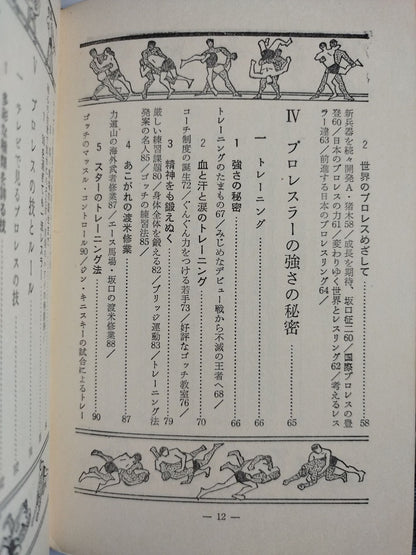 2 世界のプロレスめざして……………58
新兵器を続々開発A・猪木58／成長を期待、坂口征二60／国際プロレスの豊
登60／日本のプロレスの力61／変わりゆく世界とレスリング62／考えるレス
ラー達63／前進する日本のプロレスリング64／
Ⅳ プロレスラーの強さの秘密……………65
一 トレーニング……………66
1 強さの秘密……………66
トレーニングのたまもの67／みじめなデビュー戦から不滅の王者へ68／
2 血と汗と涙のトレーニング……………70
コーチ制度の誕生72／ぐんぐん力をつける若手73／好評なゴッチ教室76／
3 精神をも鍛えぬく……………79
厳しい練習課題80／身体全体を鍛える82／ブリッジ運動83／トレーニング法
発案の名人85／ゴッチの練習法85／
4 あこがれの渡米修業……………87
力道山の海外武者修業87／エース馬場・坂口の渡米修業88／
5 スターのトレーニング法……………90
ゴッチのマッスル・コントロール90／ジン・キニスキーの試合によるトレー
— 12 —
Ⅴ プロレスの技とルール
一 テレビでみるプロレスの技